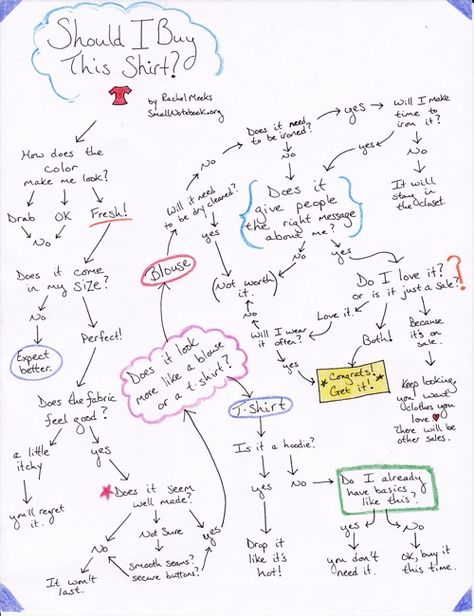 Should I Buy
This Shirt?
by Rachel Meeks
SmallNotebook.org
How does the
color
make me look?
Drab
OK
Fresh!
No
Does it come
in my size?
No
Perfect!
Expect
better.
Does the fabric
feel good?
a little
itchy
yes
you'll regret
it.
Does it seem
well made?
No
Not Sure
yes
It won't
last.
smooth seams?
secure buttons?
Does it look
more like a blouse
or a t.shirt?
Blouse
Will it need
to be dry cleaned?
No
yes
(Not worth
it.)
Does it need
to be ironed?
yes
No
Will I make
time to
iron it?
yes
No
It will
stay in
the closet.
Does it
give people
the right message
about me?
No
yes
Do I love it?
or is it just a sale?
?
Love it.
Both!
Because
it's on
sale.
Will I wear
it often?
No
yes
Congrats!
Get it!
Keep looking,
you want
clothes you
love
There will be
other sales.
T.Shirt
Is it a hoodie?
yes
No
Drop it
like it's
hot!
Do I already
have basics
like this?
yes
No
you don't
need it.
OK, buy it
this time.